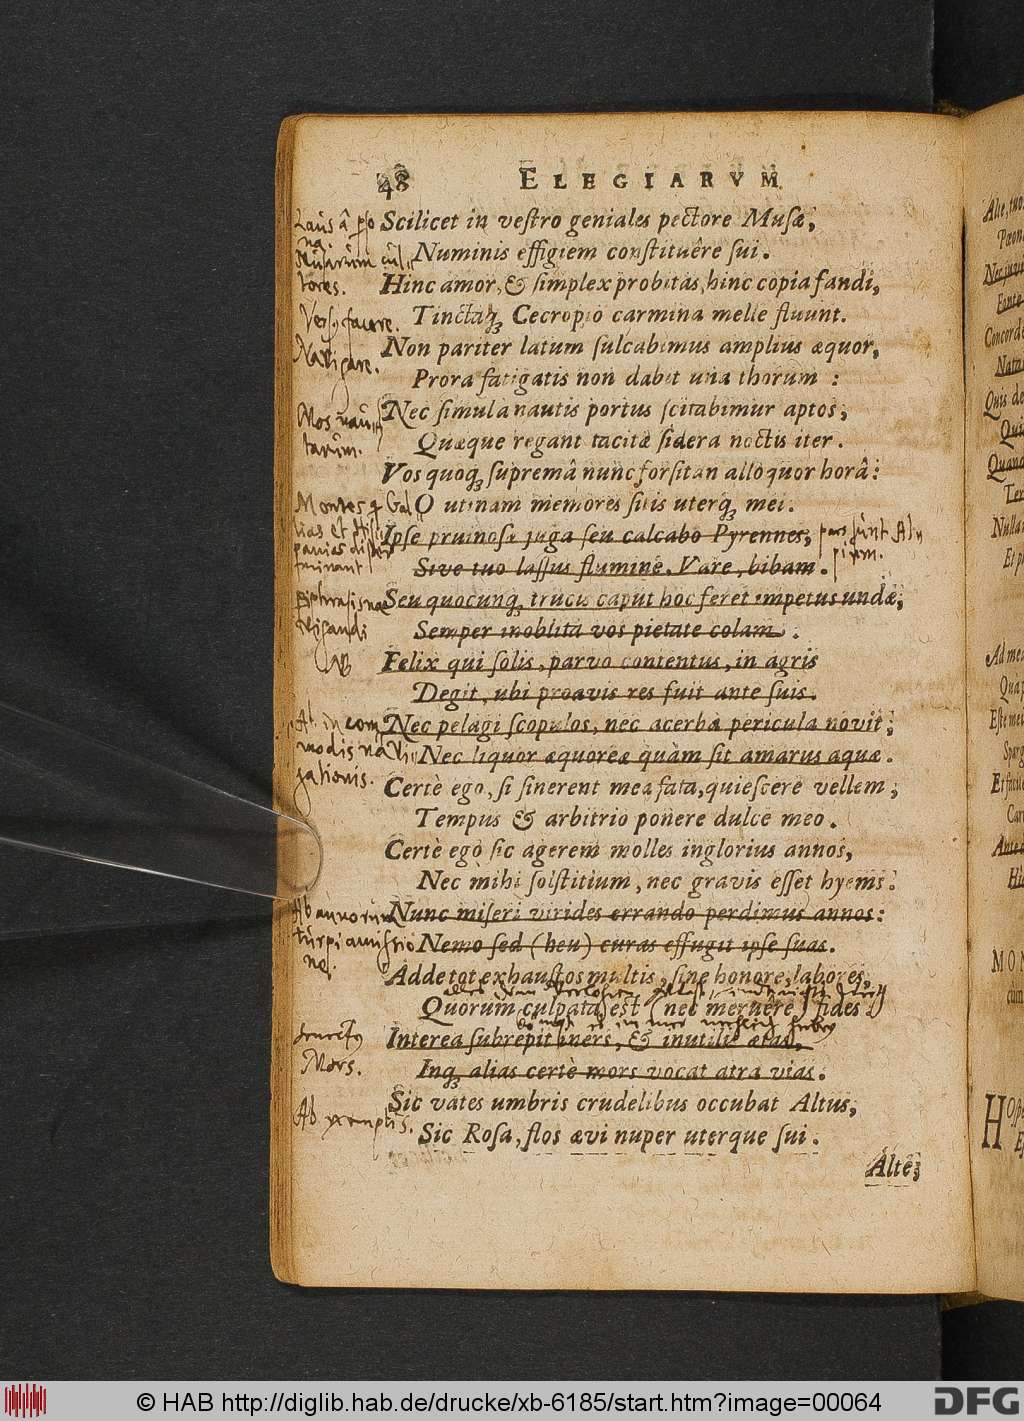 48 ELEGIARVM
Scilicet in vestro geniales pectore Musæ,
Numinis effigiem constituêre sui.
Hinc amor, & simplex probitas, hinc copia fandi,
Tinctaq; Cecropio carmina melle fluunt.
Non pariter latum sulcabimus amplius æquor,
Prora fatigatis non dabit una thorum :
Nec simul a nautis portus scitabimur aptos,
Quæque regant tacitæ sidera noctis iter.
Vos quoq; supremâ nunc forsitan alloquor horâ:
O utinam memores sitis uterq; mei.
Ipse pruinosa juga seu calcabo Pyrennes,
Sive tuo lassus flumine, Vare, bibam.
Seu quocunq; trucis caput hoc feret impetus undæ,
Semper inoblita vos pietate colam.
Felix qui solis, parvo contentus, in agris
Degit, ubi proavis res fuit ante suis.
Nec pelagi scopulos, nec acerba pericula novit,
Nec liquor æquoreæ quàm sit amarus aquæ.
Certè ego, si sinerent mea fata, quiescere vellem,
Tempus & arbitrio ponere dulce meo.
Certè ego sic agerem molles inglorius annos,
Nec mihi solstitium, nec gravis esset hyems.
Nunc miseri virides errando perdimus annos:
Nemo sed (heu) curas effugit ipse suas.
Adde tot exhaustos multis, sine honore, labores,
Quorum culpata est (nec meruere) fides.
Interea subrepit iners, & inutilis ætas,
Inq; alias certè mors vocat atra vias.
Sic vates umbris crudelibus occubat Altus,
Sic Rosa, flos ævi nuper uterque sui.
Alte,
Musarum cul-
tores.
Versq facere.
Navigare.
Mos nau-
tarum.
Montes
panias
Ab incom
modis navi-
gationis.
Ab annorum
turpi amissio
ne.
Senectus
Mors.
Ab exemplis.
© HAB http://diglib.hab.de/drucke/xb-6185/start.htm?image=00064
DFG